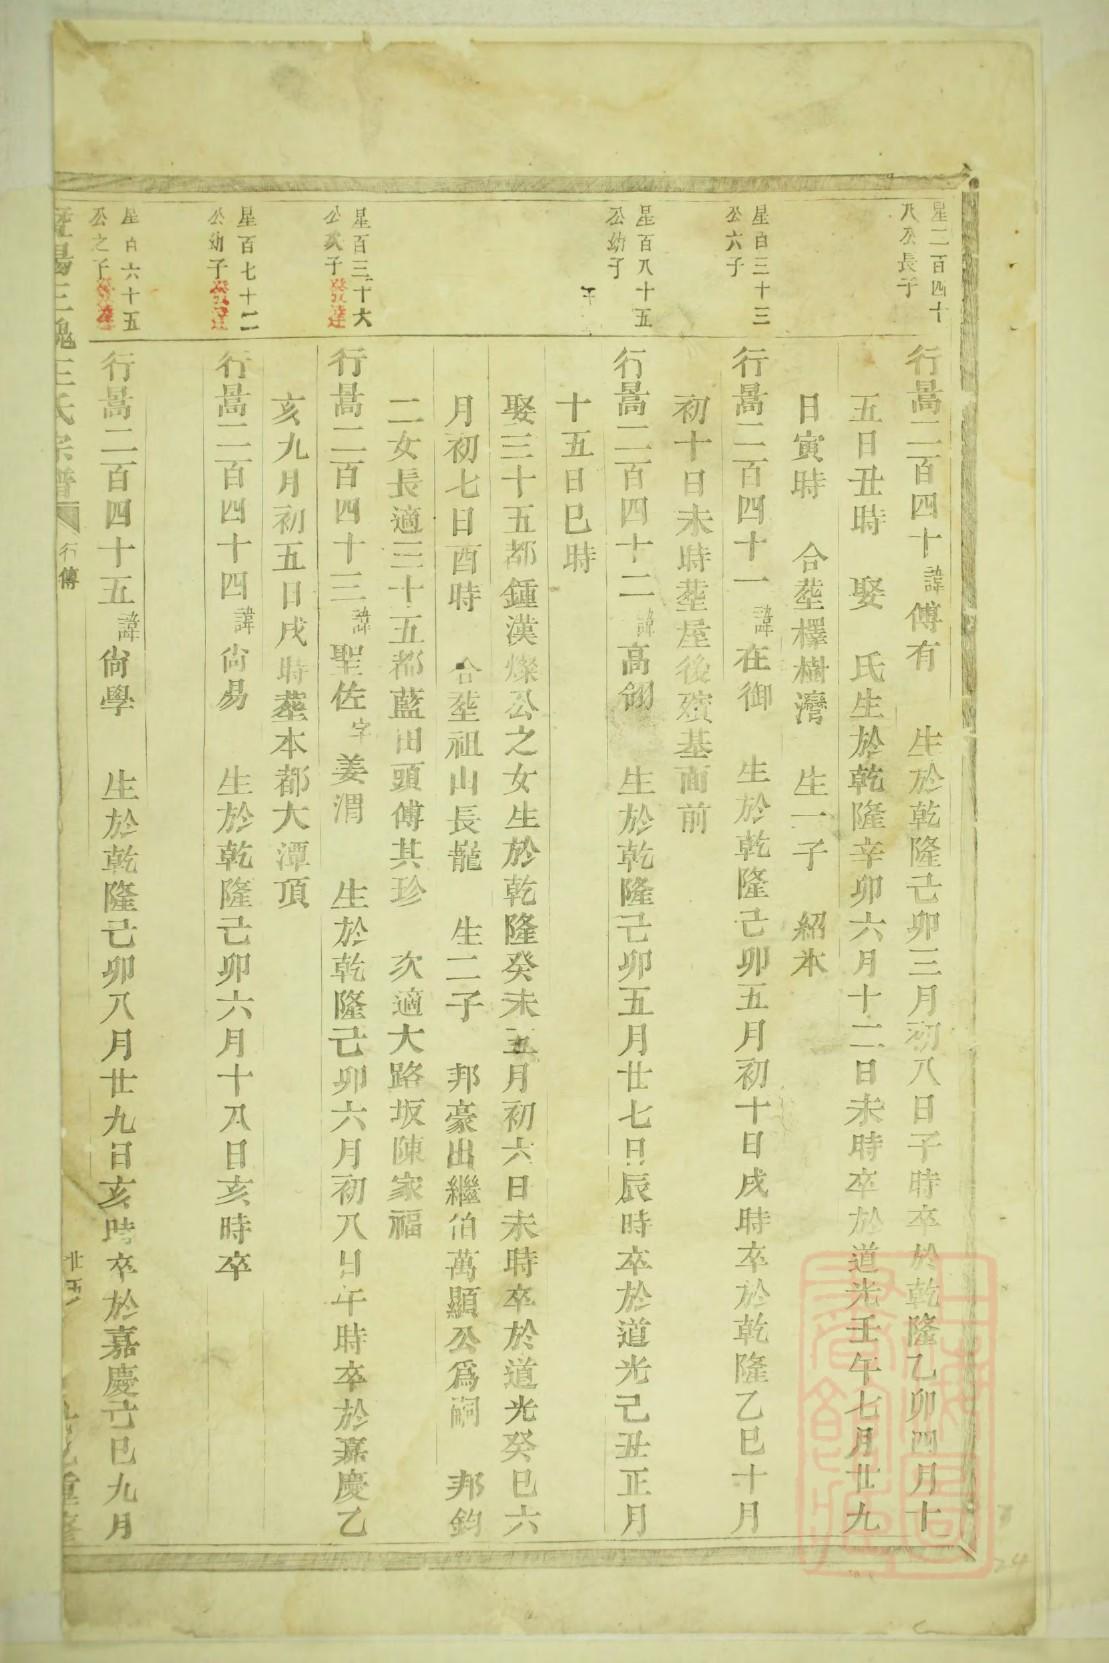 星二百四十
八公長子
行暠二百四十諱傅有 生於乾隆己卯三月初八日子時卒於乾隆乙卯四月十
五日丑時 娶 氏生於乾隆辛卯六月十二日未時卒於道光壬午七月廿九
日寅時 合塟檡樹灣 生一子 紹本
星百三十三
公六子
行暠二百四十一諱在御 生於乾隆己卯五月初十日戌時卒於乾隆乙巳十月
初十日未時塟屋後殯基面前
星百八十五
公幼子
行暠二百四十二諱高翎 生於乾隆己卯五月廿七日辰時卒於道光己丑正月
十五日巳時
娶三十五都鍾漢燦公之女生於乾隆癸未五月初六日未時卒於道光癸巳六
月初七日酉時 合塟祖山長龍 生二子 邦豪出繼伯萬顯公爲嗣 邦鈞
二女長適三十五都藍田頭傅其珍 次適大路坂陳家福
星百三十六
公次子發達
行暠二百四十三諱聖佐字姜渭 生於乾隆己卯六月初八日午時卒於嘉慶乙
亥九月初五日戌時塟本都大潭頂
星百七十二
公幼子發達
行暠二百四十四諱尙易 生於乾隆己卯六月十八日亥時卒
星百六十五
公之子發達
行暠二百四十五諱尙學 生於乾隆己卯八月廿九日亥時卒於嘉慶己巳九月
暨陽三槐王氏宗譜 行傳 廿四